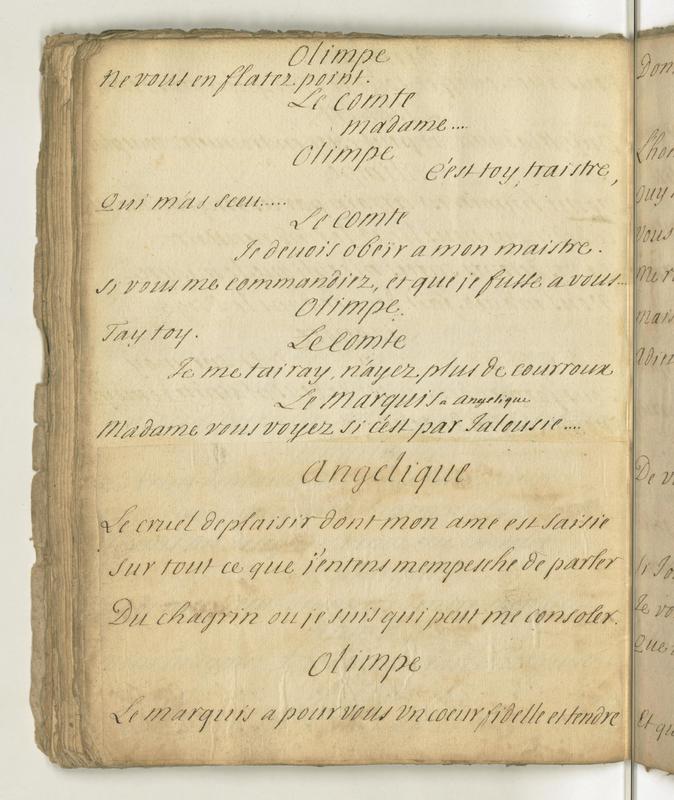 Olimpe
Ne vous en flatez point.
Le Comte
madame....
Olimpe
C'est toy, traistre,
Qui m'as sceu.....
Le Comte
Je devois obeïr a mon maistre.
Si vous me commandiez, et que je fusse a vous...
Olimpe.
Tay toy.
Le Comte
Je me tairay, n'ayez plus de courroux
Le Marquis a Angelique
Madame vous voyez si c'est par Jalousie....
Angelique
Le cruel deplaisir dont mon ame est saisie
Sur tout ce que j'entens mempesche de parler
Du chagrin ou je suis qui peut me consoler.
Olimpe
Le marquis a pour vous un coeur fidelle et tendre